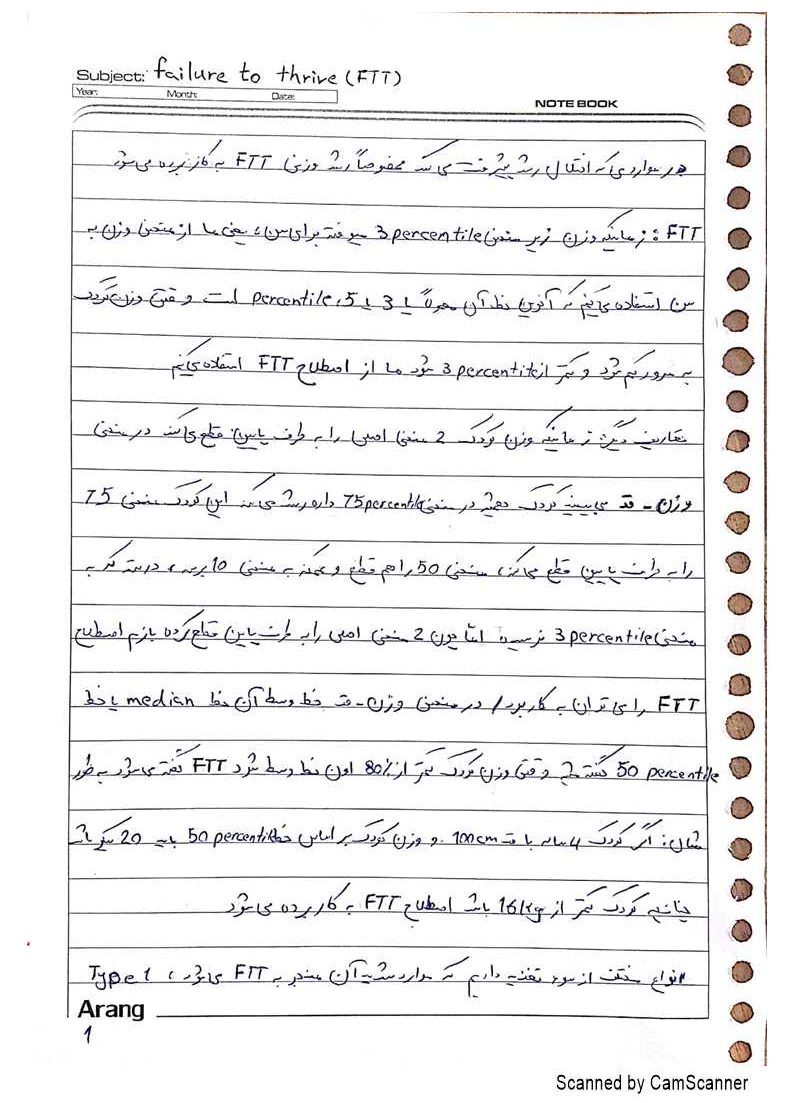 Subject: failure to thrive (FTT)
Year: Month: Date:
NOTE BOOK
هر مواردی که اختلال رشد پیشرفت می‌کند مخصوصاً رشد وزنی FTT به کار برده می‌شود
FTT : زمانیکه وزن زیر منحنی 3 percentile میوفته برای سن، یعنی ما از منحنی وزن به
سن استفاده می‌کنیم که آخرین خط آن معمولاً یا 3 یا 5، percentile است و وقتی وزن کودک
به مرور کم شود و کمتر از 3 percentile شود ما از اصطلاح FTT استفاده می‌کنیم
تعاریف دیگر: زمانیکه وزن کودک 2 منحنی اصلی را به طرف پایین قطع می‌کند در منحنی
وزن - قد می‌بینید کودک همیشه در منحنی 75 percentile داره رشد می‌کند این کودک منحنی 75
را به طرف پایین قطع می‌کند، منحنی 50 را هم قطع و ممکنه به منحنی 10 برسه، درسته که به
منحنی 3 percentile نرسیده اما چون 2 منحنی اصلی را به طرف پایین قطع کرده بازم اصطلاح
FTT را می‌توان به کار برد / در منحنی وزن - قد خط وسط آن خط median یا خط
50 percentile گفته و وقتی وزن کودک کمتر از 80% اون خط وسط شود FTT گفته می‌شود به طور
مثال: اگر کودک 4 ساله با قد 100cm و وزن کودک بر اساس خط 50 percentile باید 20 کیلو باشد
چنانچه کودک کمتر از 16kg باشد اصطلاح FTT به کار برده می‌شود
*انواع مختلف از سوء تغذیه داریم که موارد شدید آن منجر به FTT می‌شود، Type 1
Arang
1
Scanned by CamScanner